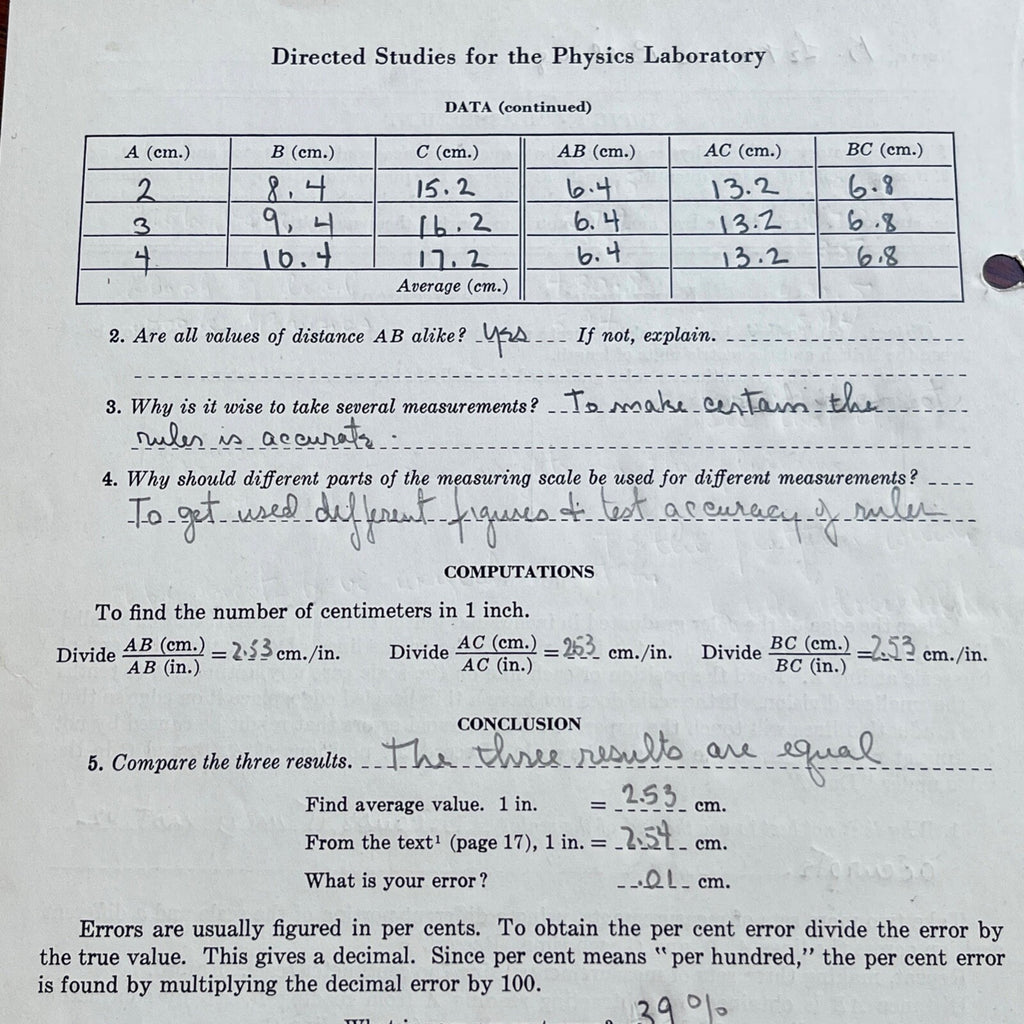 Directed Studies for the Physics Laboratory
DATA (continued)
A (cm.) B (cm.) C (cm.) AB (cm.) AC (cm.) BC (cm.)
2 8.4 15.2 6.4 13.2 6.8
3 9.4 16.2 6.4 13.2 6.8
4 10.4 17.2 6.4 13.2 6.8
Average (cm.)
2. Are all values of distance AB alike? Yes If not, explain.
3. Why is it wise to take several measurements? To make certain the
ruler is accurate.
4. Why should different parts of the measuring scale be used for different measurements?
To get used different figures & test accuracy of ruler
COMPUTATIONS
To find the number of centimeters in 1 inch.
Divide AB (cm.) / AB (in.) = 2.53 cm./in. Divide AC (cm.) / AC (in.) = 2.53 cm./in. Divide BC (cm.) / BC (in.) = 2.53 cm./in.
CONCLUSION
5. Compare the three results. The three results are equal
Find average value. 1 in. = 2.53 cm.
From the text¹ (page 17), 1 in. = 2.54 cm.
What is your error? .01 cm.
Errors are usually figured in per cents. To obtain the per cent error divide the error by
the true value. This gives a decimal. Since per cent means "per hundred," the per cent error
is found by multiplying the decimal error by 100.
39%